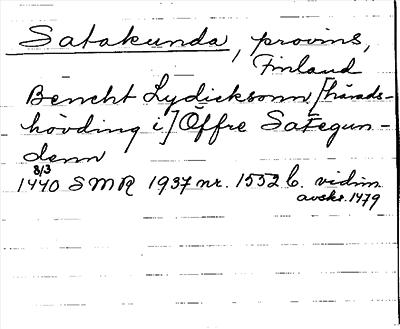 Satakunda, provins,
Finland
Bencht Lydicksonn [härads-
hövding i] Öffre Sategun-
denn
8/3
1440 SMR 1937 nr. 1552 b. vidim.
avskr. 1479